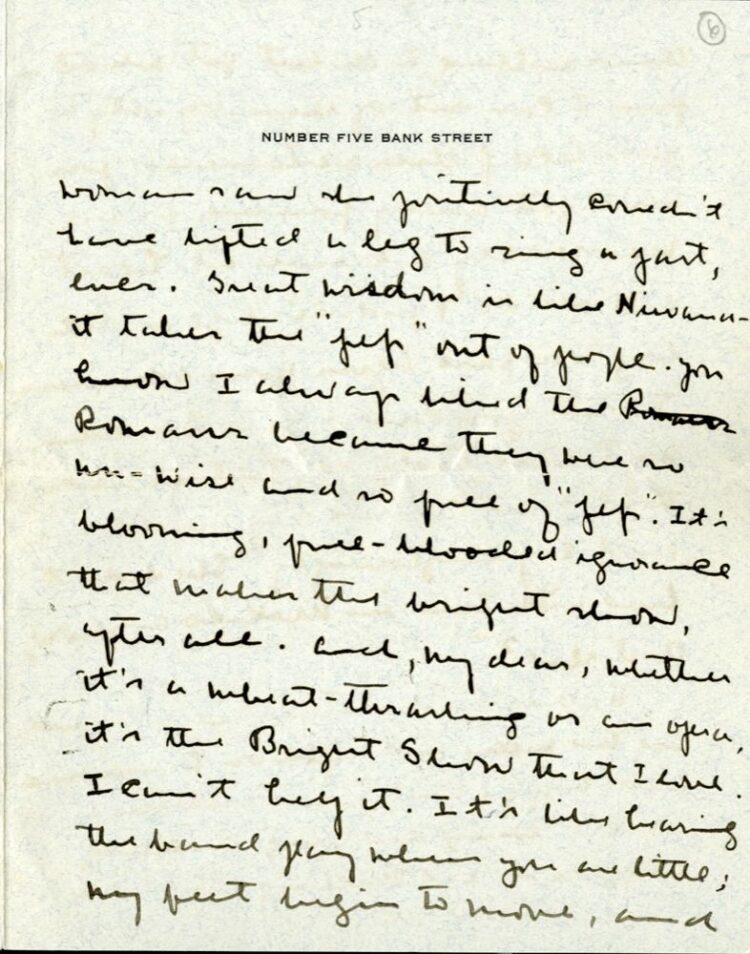 5
6
NUMBER FIVE BANK STREET
woman she positively couldn't
have lifted a leg to sing a part,
ever. Great wisdom is like Nirvana-
it takes the "pep" out of people. You
know I always liked the Romans
Romans because they were so
un-wise and so full of "pep". It's
blooming, full-blooded ignorance
that makes the bright show,
after all. And, my dear, whether
it's a wheat-thrashing or an opera,
it's the Bright Show that I love.
I can't help it. It's like hearing
the band play when you are little;
my feet begin to move, and